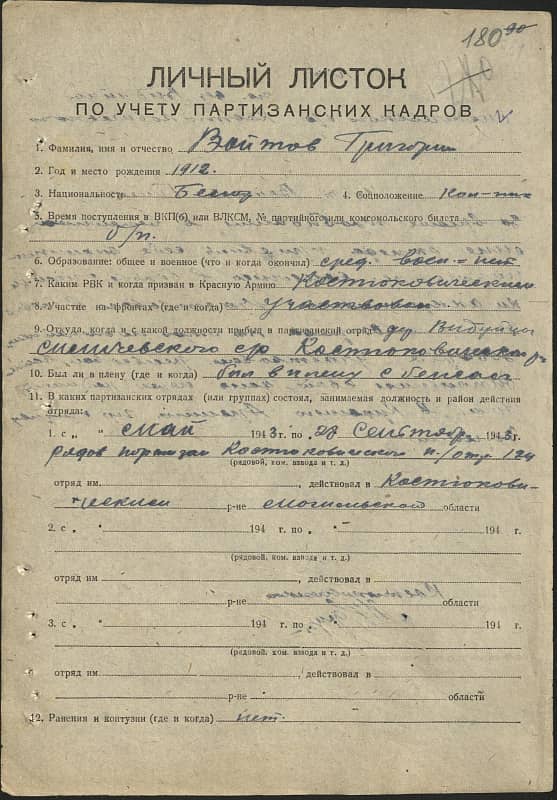 180
ЛИЧНЫЙ ЛИСТОК
ПО УЧЕТУ ПАРТИЗАНСКИХ КАДРОВ
1. Фамилия, имя и отчество Войтов Григорий
2. Год и место рождения 1912.
3. Национальность Белор. 4. Соцположение
5. Время поступления в ВКП(б) или ВЛКСМ, № партийного или комсомольского билета
б/п.
6. Образование: общее и военное (что и когда окончил) сред. воен. = нет
7. Каким РВК и когда призван в Красную Армию Костюковическим
8. Участие на фронтах (где и когда) участвовал
9. Откуда, когда и с какой должности прибыл в партизанский отряд из дер.
с/с Костюковичский р-
10. Был ли в плену (где и когда) был в плену с
11. В каких партизанских отрядах (или группах) состоял, занимаемая должность и район действия
отряда:
1. с „ май 1943 г. по „ 28 сентября 1943 г.
рядов партизан Костюковичского п/отр 124
(рядовой, ком. взвода и т. д.)
отряд им , действовал в Костюкови-
ческом р-не могилевской области
2. с „ " 194 г. по „ " 194 г.
(рядовой, ком. взвода и т. д.)
отряд им , действовал в
р-не области
3. с „ 194 г. по 194 г.
(рядовой, ком. взвода и т. д.)
отряд им , действовал в
р-не области
12. Ранения и контузии (где и когда) нет.